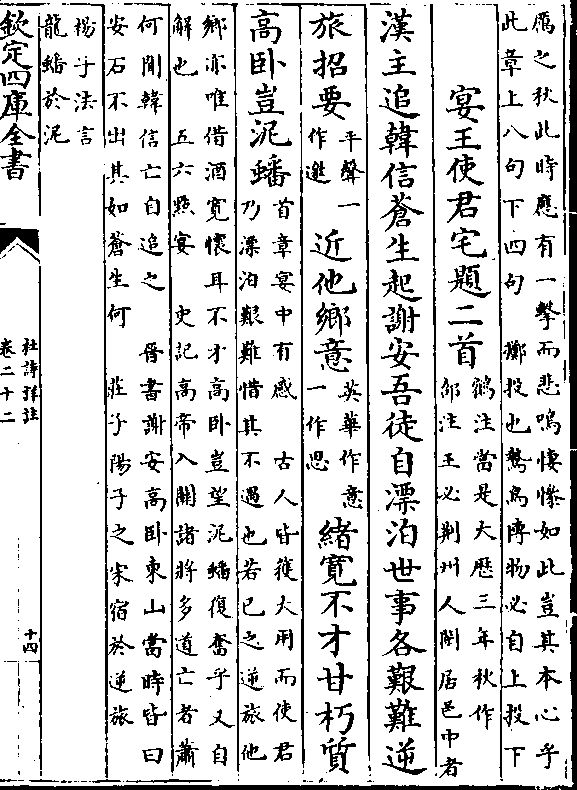 厲之秋此時應有一擊而悲鳴悽慘如此豈其本心乎
此章上八句下四句 擲投也鷙鳥博物必自上投下
宴王使君宅題二首
鶴注當是大歴三年秋作
邵注王必荆州人閒居邑中者
漢主追韓信蒼生起謝安吾徒自漂泊世事各艱難逆
旅招要
平聲一
作邀
近他鄉意
英華作意
一作思
緒寛不才甘朽質
高卧豈泥蟠
首章宴中有感 古人皆獲大用而使君
乃漂泊艱難惜其不遇也若已之逆旅他
鄉亦唯借酒寛懷耳不才高卧豈望泥蟠復奮乎又自
解也 五六㸃宴 史記高帝入關諸將多道亡者蕭
何聞韓信亡自追之 晉書謝安高卧東山當時皆曰
安石不出其如蒼生何 莊子陽子之宋宿於逆旅
揚子法言
龍蟠於泥
欽定四庫全書
杜詩詳注
卷二十二
十四